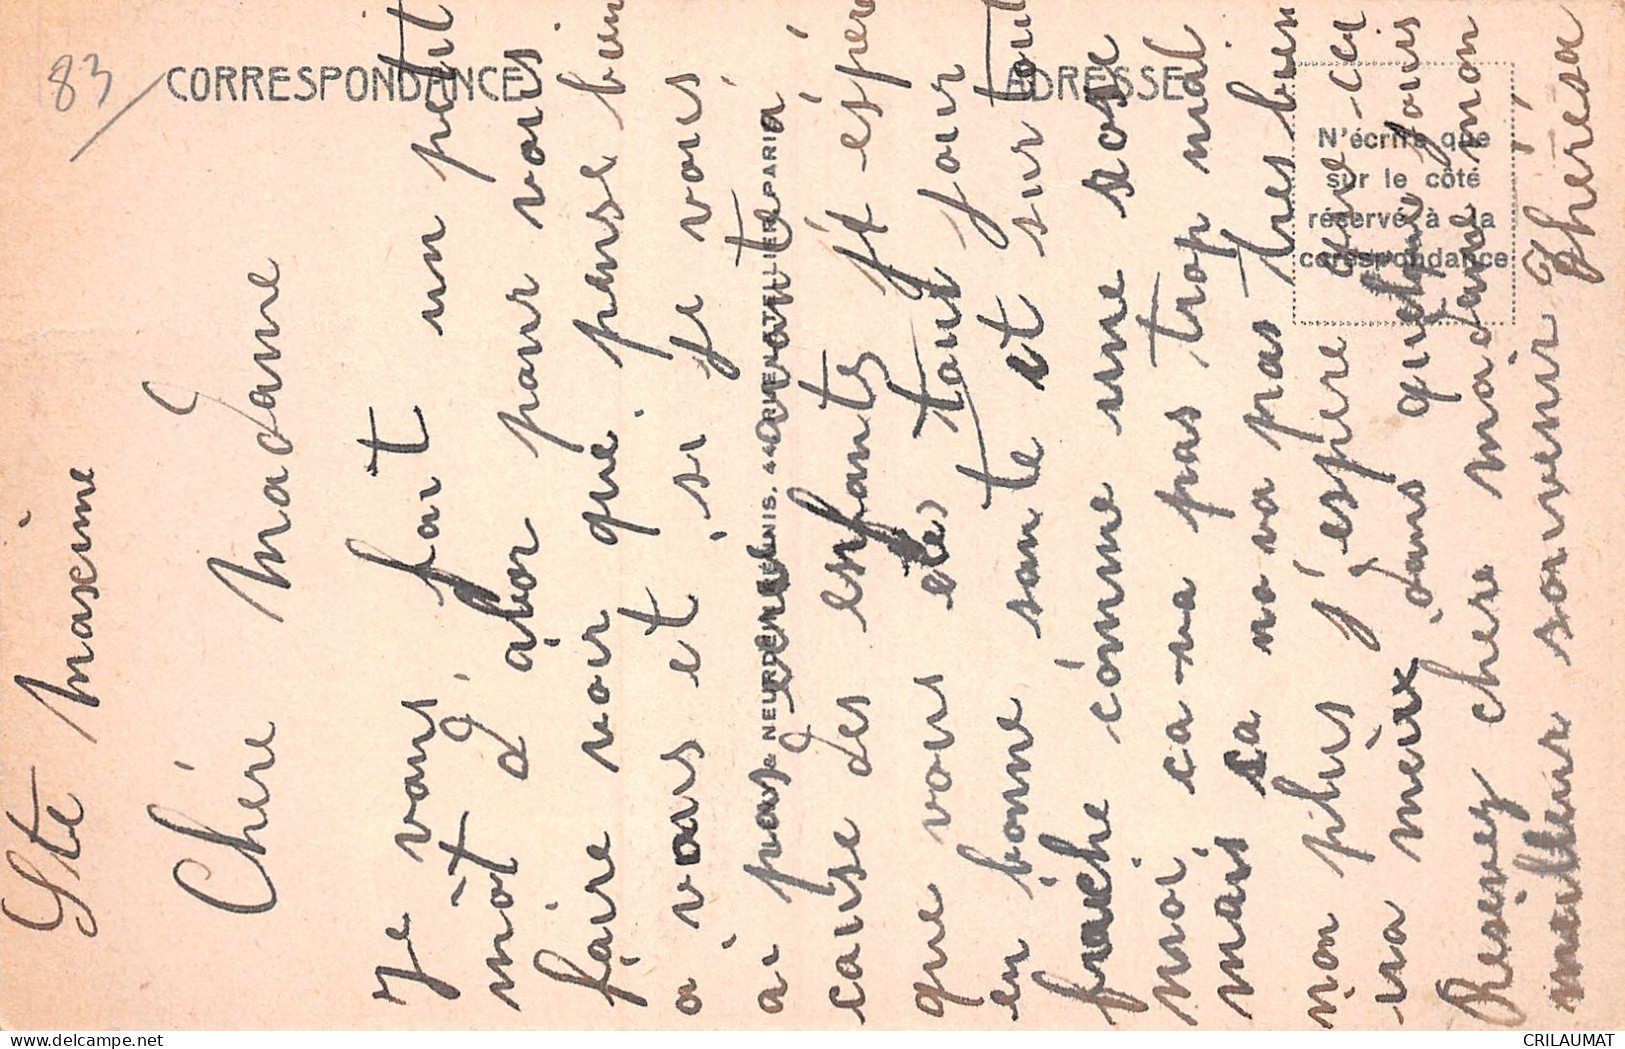 83
CORRESPONDANCE
ADRESSE
N'écrire que
sur le côté
réservé à la
correspondance
NEURDEIN
PARIS
Ste Maxime
Chère Madame
Je vous fait un petit
môt d'abor pour vous
faire voir que pense bien
a vous et si je vous
ai pas ecrit avant
cause des enfants j'espere
que vous etes tous jour
en bonne sante et sur tout
fraiche cómme une rose
moi ca-va pas trop mal
mais ca no va pas tres bien
non plus j'espere que ceci
va mèux dans quelque jours
Resevez chere madame mon
meilleur souvenir Thérésa
CRILAUMAT